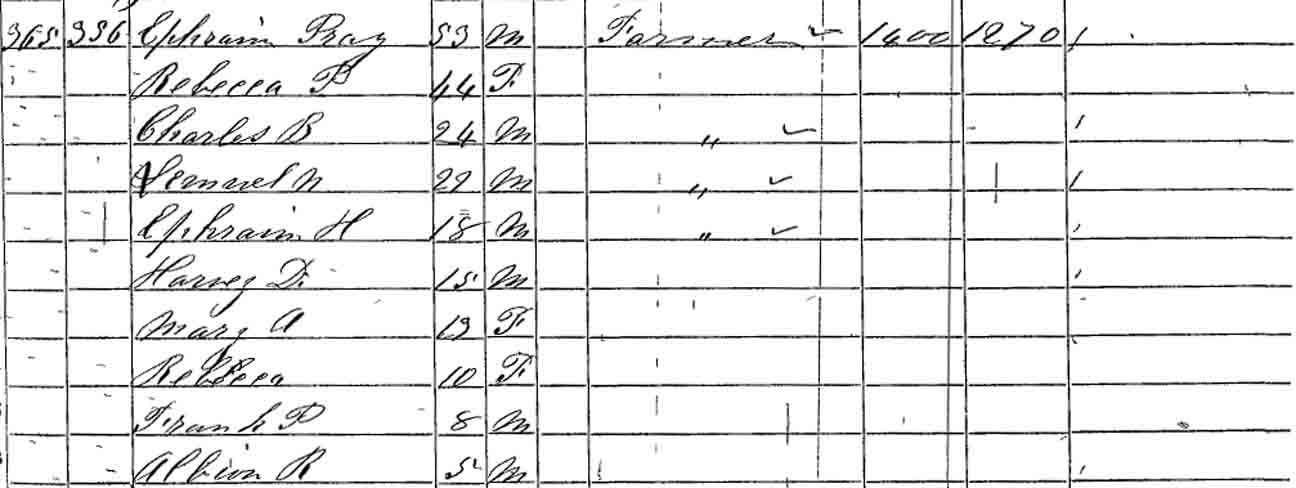 365 336 Ephraim Pray 53 M Farmer ✓ 1400 1270 /
Rebecca P 44 F
Charles B 24 M „ ✓ /
Lemuel N 22 M „ ✓ /
Ephraim H 18 M „ ✓ /
Harvey D. 15 M /
Mary A 13 F
Rebecca 10 F
Frank P 8 M
Albion R 5 M /